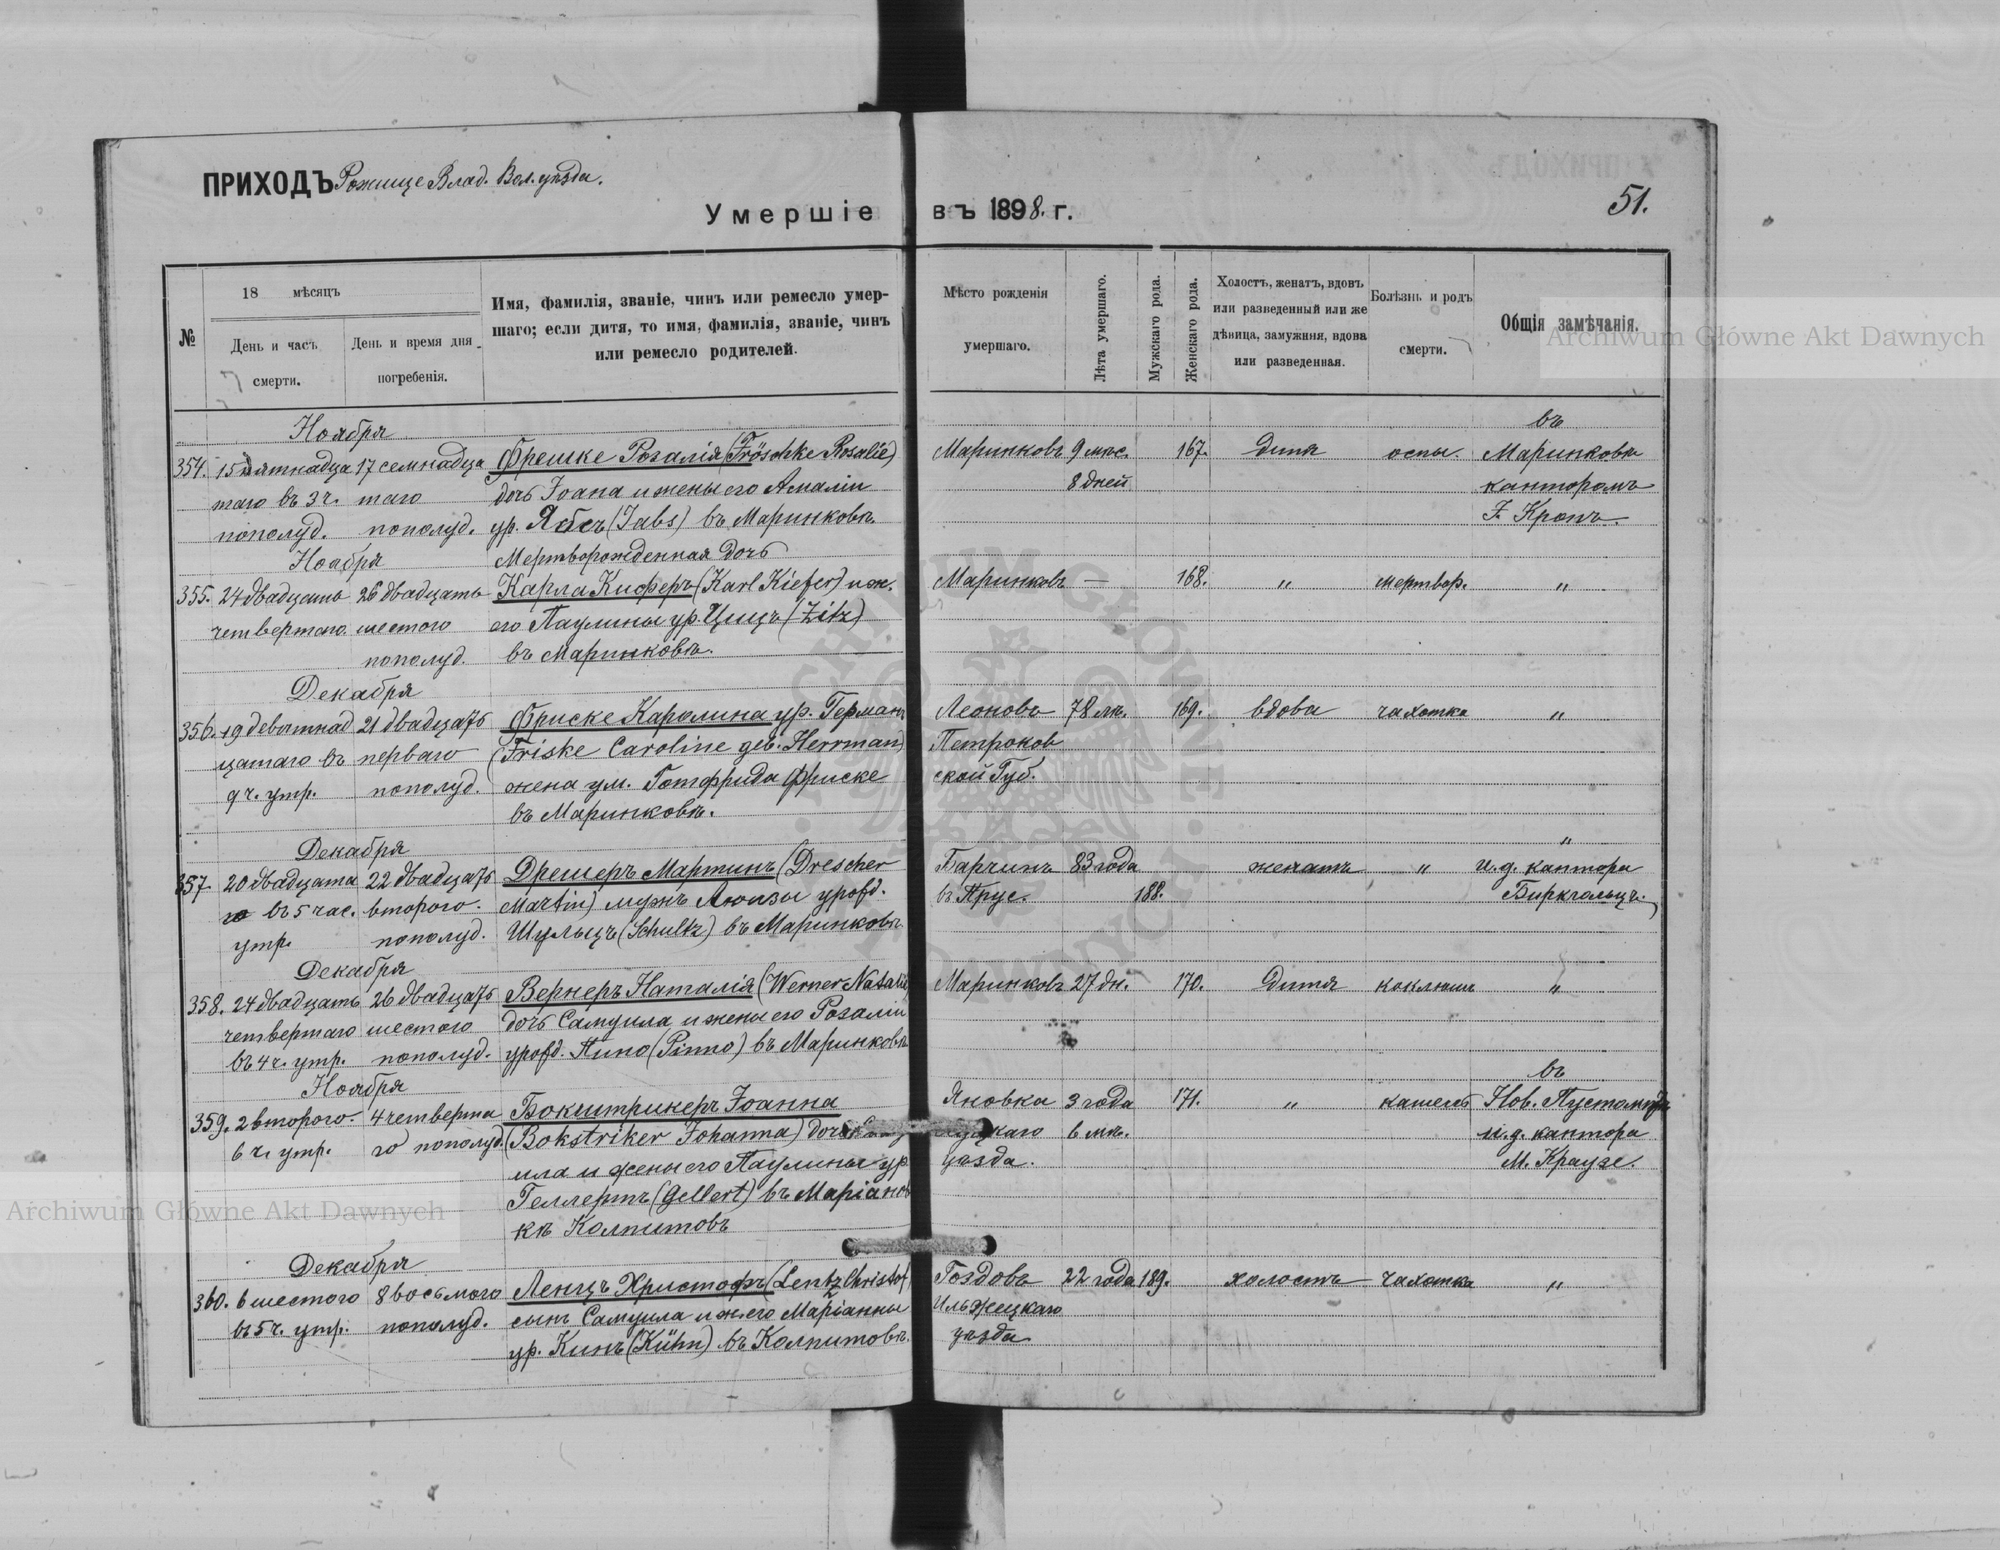 ПРИХОДЪ Рожище Влад. Вол. уѣзда.
Умершіе въ 1898. г.
51.
№
18 мѣсяцъ
День и часъ смерти.
День и время дня погребенія.
Имя, фамилія, званіе, чинъ или ремесло умер-
шаго; если дитя, то имя, фамилія, званіе, чинъ
или ремесло родителей.
Мѣсто рожденія
умершаго.
Лѣта умершаго.
Мужскаго рода.
Женскаго рода.
Холостъ, женатъ, вдовъ
или разведенный или же
дѣвица, замужняя, вдова
или разведенная.
Болѣзнь и родъ
смерти.
Общія замѣчанія.
Archiwum Główne Akt Dawnych
Ноября въ
354. 15 пятнадца 17 семнадца Фрешке Розалія (Fröschke Rosalie) Маринковъ 9 мѣс. 167. дитя оспы. Маринковѣ
таго въ 3 ч. таго дочь Іоана и жены его Амаліи 8 дней канторомъ
пополуд. пополуд. ур. Ябсъ (Jabs) въ Маринковѣ. F. Кронъ.
Ноября Мертворожденная дочь
355. 24 двадцать 26 двадцать Карла Киферъ (Karl Kiefer) и ж. Маринковъ — 168. " мертвор. "
четвертаго шестого его Паулины ур. Цицъ (Zitz)
пополуд. въ Маринковѣ.
Декабря
356. 19 девятнад 21 двадцать Фриске Каролина ур. Герман Леоновъ 78 лѣ. 169. вдова чахотка "
цатаго въ перваго (Friske Caroline geb. Herrman) Петроков
9 ч. утр. пополуд. жена ум. Готфрида Фриске ской Губ.
въ Маринковѣ.
Декабря "
357. 20 двадцата 22 двадцать Дрешеръ Мартинъ (Drescher Барчинъ 83 года женатъ " и. д. кантора
го въ 5 час. второго. Martin) мужъ Луизы урожд. въ Прус. 188. Биркгольцъ.
утр. пополуд. Шульцъ (Schultz) въ Маринковѣ
Декабря
358. 24 двадцать 26 двадцать Вернеръ Наталія (Werner Natalie) Маринковъ 27 дн. 170. дитя коклюшъ "
четвертаго шестого дочь Самуила и жены его Розаліи
въ 4 ч. утр. пополуд. урожд. Пино (Pinno) въ Маринковѣ
Ноября въ
359. 2 второго. 4 четверта Бокштрикеръ Іоанна Яновка 3 года 171. " кашель Нов.
6 ч. утр. го пополуд. (Bokstriker Johanna) дочь 6 мѣ. и. д. кантора
ила и жены его Паулины ур. уѣзда. М. Краузе.
Геллертъ (Gellert) въ Маріанов
кѣ Колпитовъ
Archiwum Główne Akt Dawnych
Декабря
360. 6 шестого 8 восьмого Ленцъ Христофъ (Lentz Christof) Гоздовъ 22 года 189. холостъ чахотка "
въ 5 ч. утр. пополуд. сынъ Самуила и ж. его Маріанны Ильжецкаго
ур. Кинъ (Kühn) въ Колпитовѣ. уѣзда.